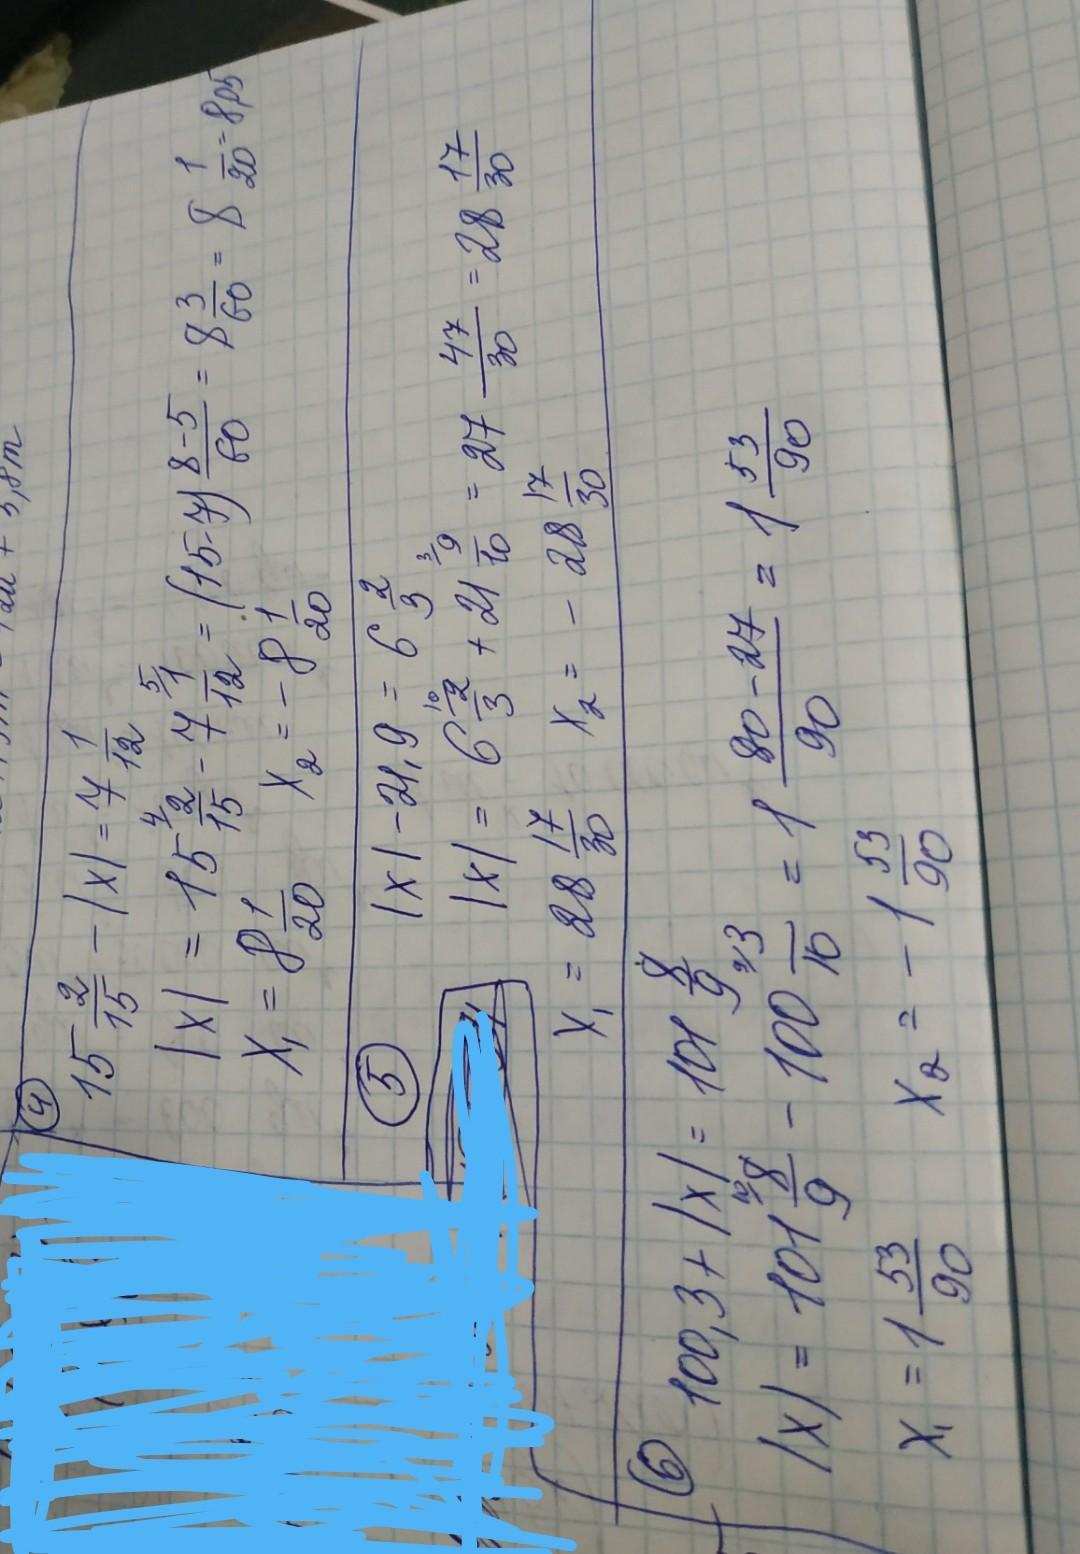 4
15 2/15 - |x| = 7 1/12
|x| = 15 2/15 - 7 1/12 = (15-7) 8-5/60 = 8 3/60 = 8 1/20 = 8,05
x₁ = 8 1/20 x₂ = -8 1/20
5
|x| - 21,9 = 6 2/3
|x| = 6 2/3 + 21 9/10 = 27 47/30 = 28 17/30
x₁ = 28 17/30 x₂ = -28 17/30
6
100,3 + |x| = 101 8/9
|x| = 101 8/9 - 100 3/10 = 1 80-27/90 = 1 53/90
x₁ = 1 53/90 x₂ = -1 53/90